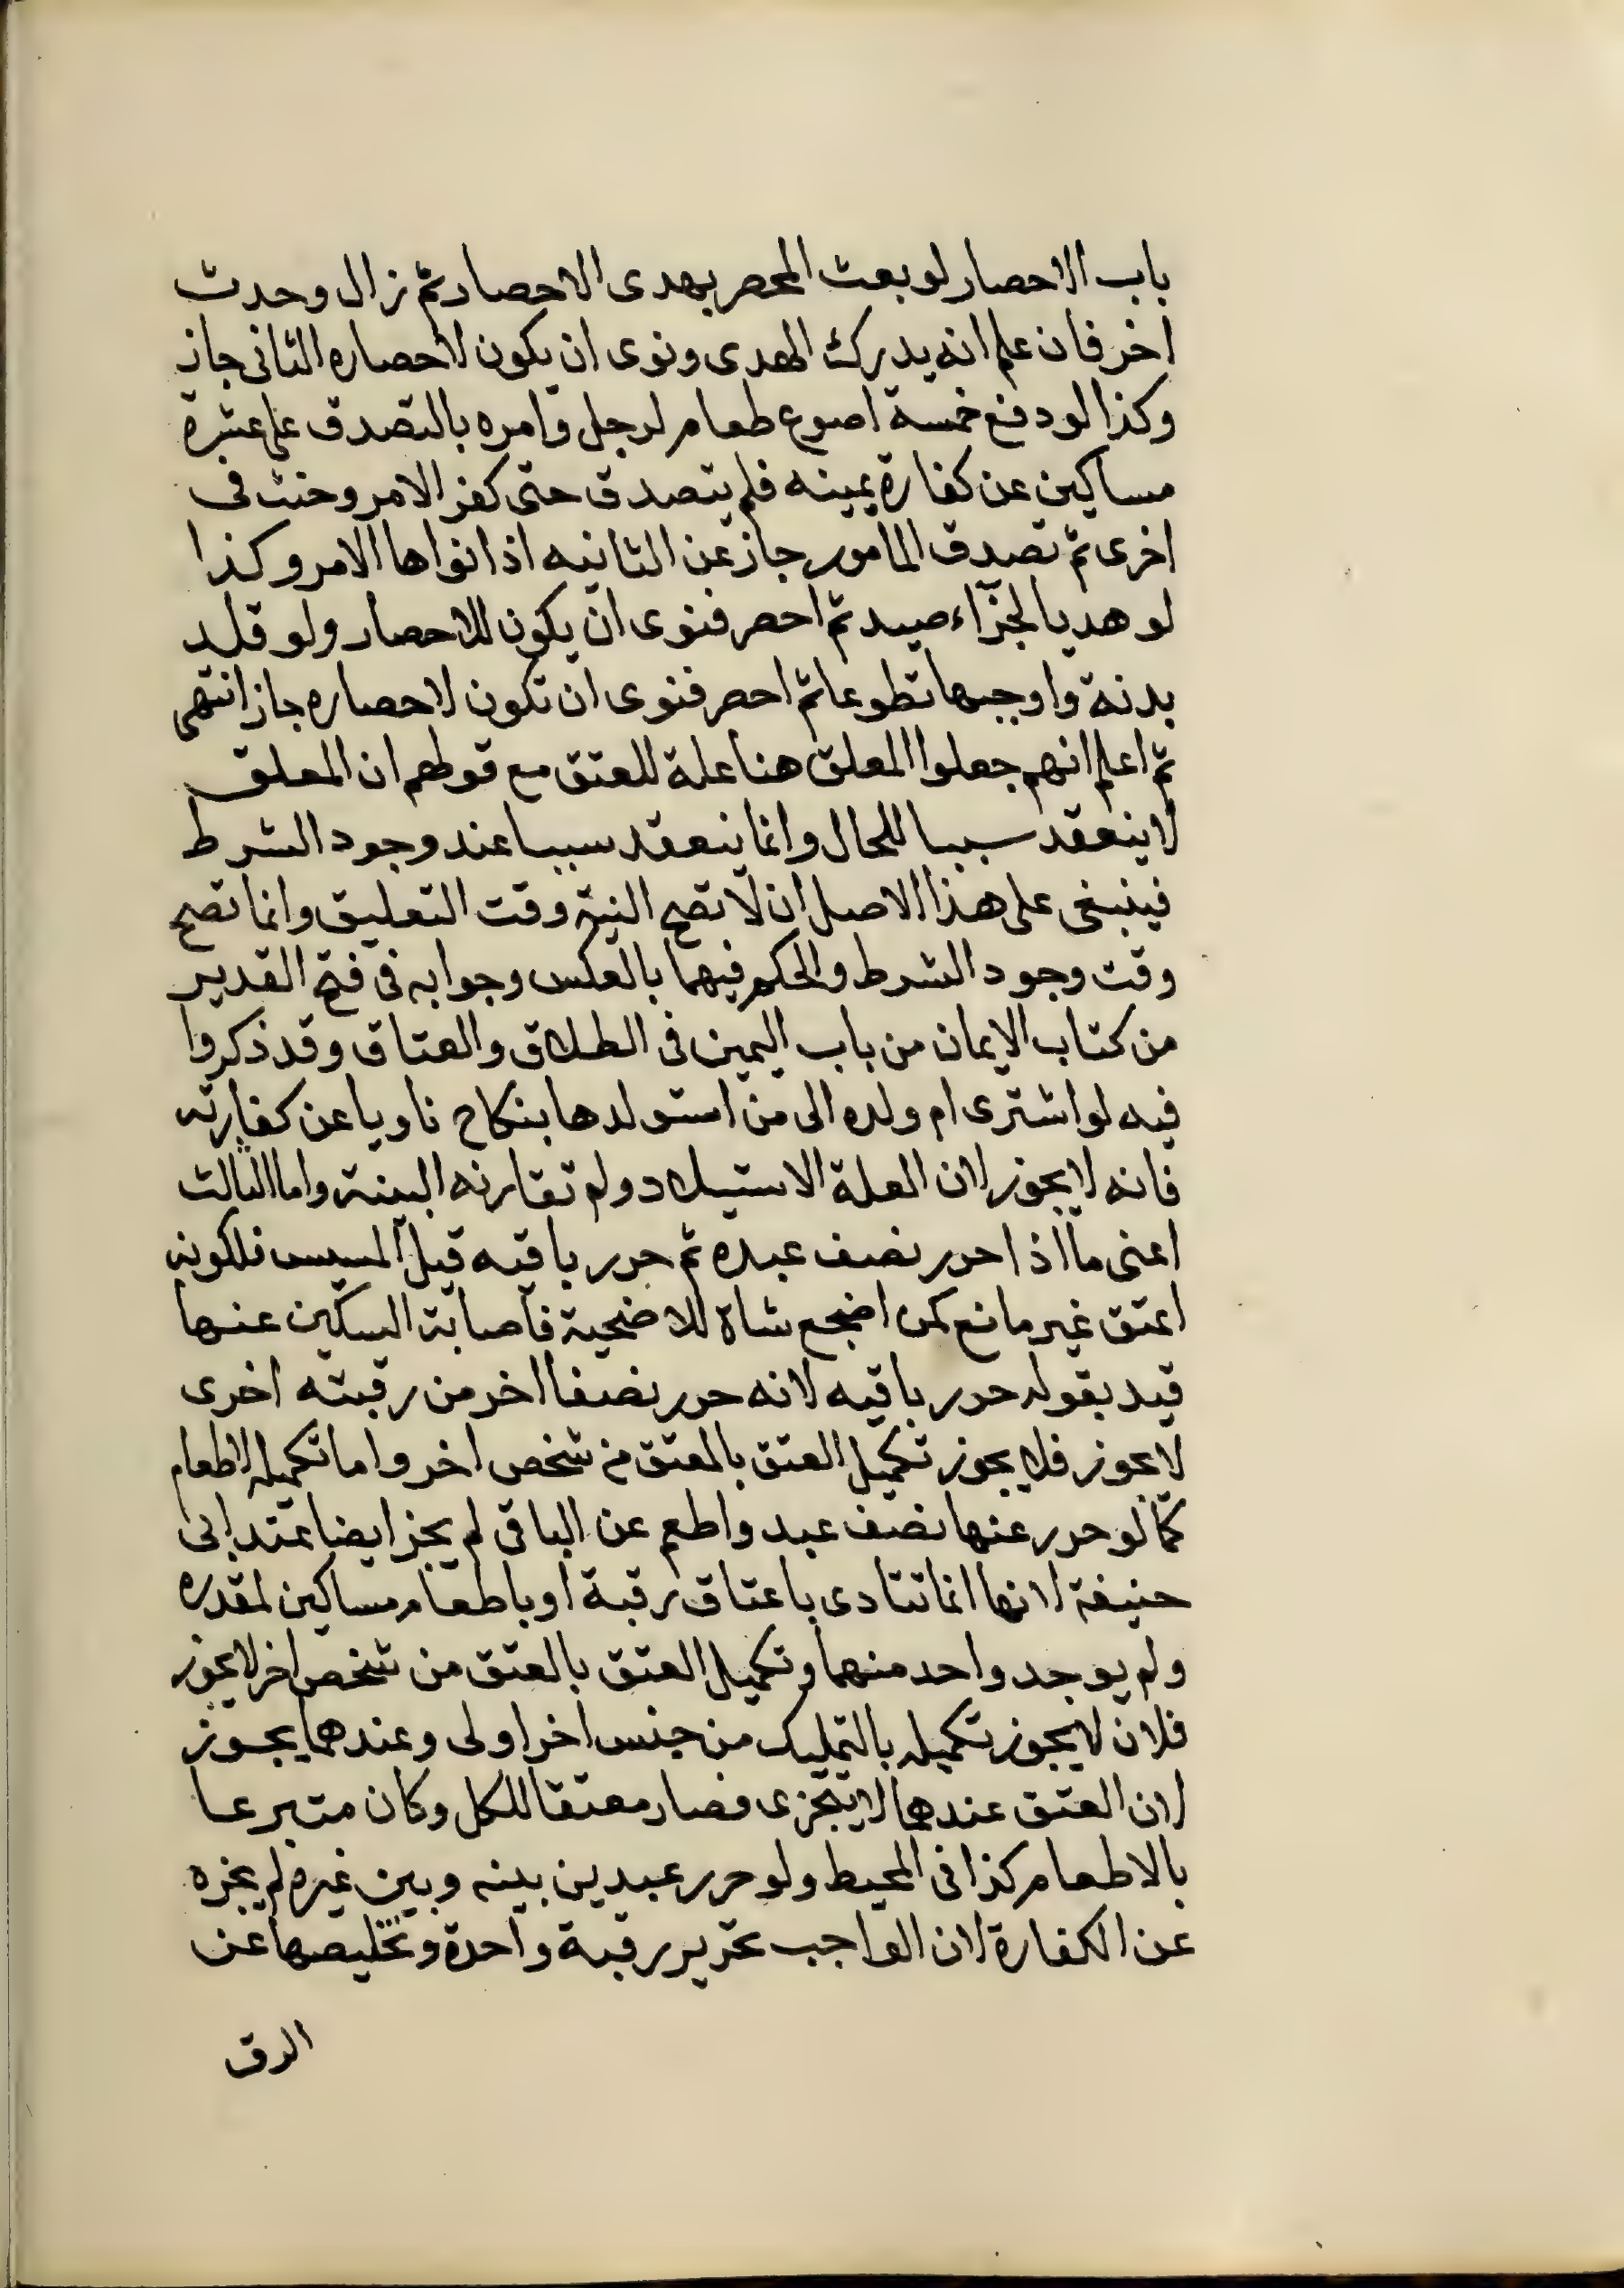 باب الاحصار لو بعث المحصر بهدى الاحصار ثم زال وحدث
اخر فان علم انه يدرك الهدى ونوى ان يكون لاحصاره الثانى جاز
وكذا لو دفع خمسة اصوع طعام لرجل وامره بالتصدق على عشرة
مساكين عن كفارة يمينه فلم يتصدق حتى كفر الامر وحنث فى
اخرى ثم تصدق المامور جاز عن الثانيه اذا نواها الامر وكذا
لو هديا لجزاء صيد ثم احصر فنوى ان يكون للاحصار ولو قلد
بدنة واوجبها تطوعا ثم احصر فنوى ان تكون لاحصاره جاز انتهى
ثم اعلم انهم جعلوا المعلق هنا علة للعتق مع قولهم ان المعلق
لا ينعقد سببا للحال وانما ينعقد سببا عند وجود الشرط
فينبغى على هذا الاصل ان لا تصح النية وقت التعليق وانما تصح
وقت وجود الشرط والحكم فيهما بالعكس وجوابه فى فتح القدير
من كتاب الايمان من باب اليمين فى الطلاق والعتاق وقد ذكروا
فيه لو اشترى ام ولده الى من استولدها بنكاح ناويا عن كفارته
فانه لا يجوز لان العلة الاستيلاد ولم تقارنه البينة واما الثالث
اعنى ما اذا حرر نصف عبده ثم حرر باقيه قبل المسيس فلكونه
اعتق غير مانع كمن اضجع شاة للاضحية فاصابة السكين عنها
قيد بقوله حرر باقيه لانه حرر نصفا اخر من رقبته اخرى
لا يجوز فلا يجوز تكميل العتق بالمعتق من شخص اخر واما تكميله الاطعام
كما لو حرر عنها نصف عبد واطعم عن الباقى لم يجز ايضا عند ابى
حنيفة لانها انما تتادى باعتاق رقبة او باطعام مساكين لمقدره
ولم يوجد واحد منهما وتكميل العتق بالعتق من شخص اخر لا يجوز
فلان لا يجوز تكميله بالتمليك من جنس اخر اولى وعندهما يجوز
لان العتق عندهما لا يتجزى فصار معتقا للكل وكان متبرعا
بالاطعام كذا فى المحيط ولو حرر عبدين بينه وبين غيره لم يجزه
عن الكفارة لان الواجب تحرير رقبة واحدة وتخليصها عن
الرق